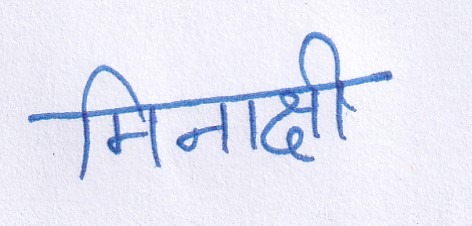 मिनाक्षी